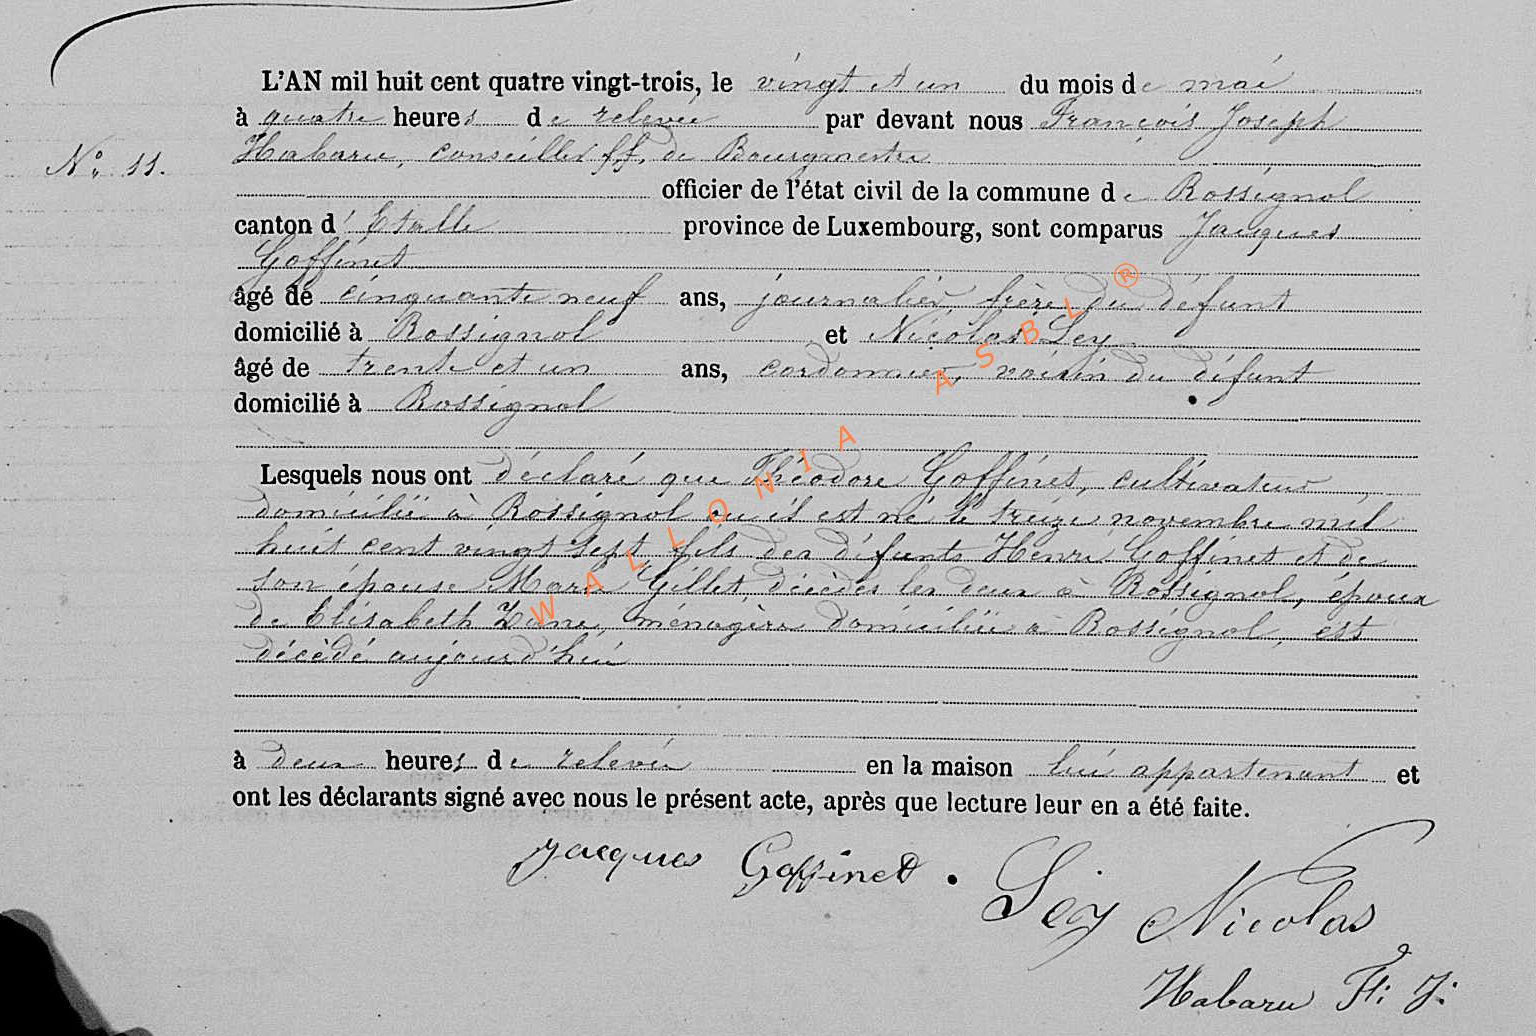 L'AN mil huit cent quatre vingt-trois, le vingt et un du mois de mai
à quatre heures de relevée par devant nous François Joseph
N° 11.
Habaru, conseiller ff. de Bourgmestre
officier de l'état civil de la commune de Rossignol
canton d'Etalle province de Luxembourg, sont comparus Jacques
Goffinet
âgé de cinquante neuf ans, journalier, frère du défunt
domicilié à Rossignol et Nicolas Ley
âgé de trente et un ans, cordonnier, voisin du défunt
domicilié à Rossignol
Lesquels nous ont déclaré que Théodore Goffinet, cultivateur
domicilié à Rossignol où il est né le treize novembre mil
huit cent vingt sept, fils des défunts Henri Goffinet et de
son épouse Marie Gillet, décédés les deux à Rossignol, époux
de Elisabeth, ménagère domiciliée à Rossignol, est
décédé aujourd'hui
à deux heures de relevée en la maison lui appartenant et
ont les déclarants signé avec nous le présent acte, après que lecture leur en a été faite.
Jacques Goffinet.
Ley Nicolas
Habaru F: J:
WALLONIA ASBL ®